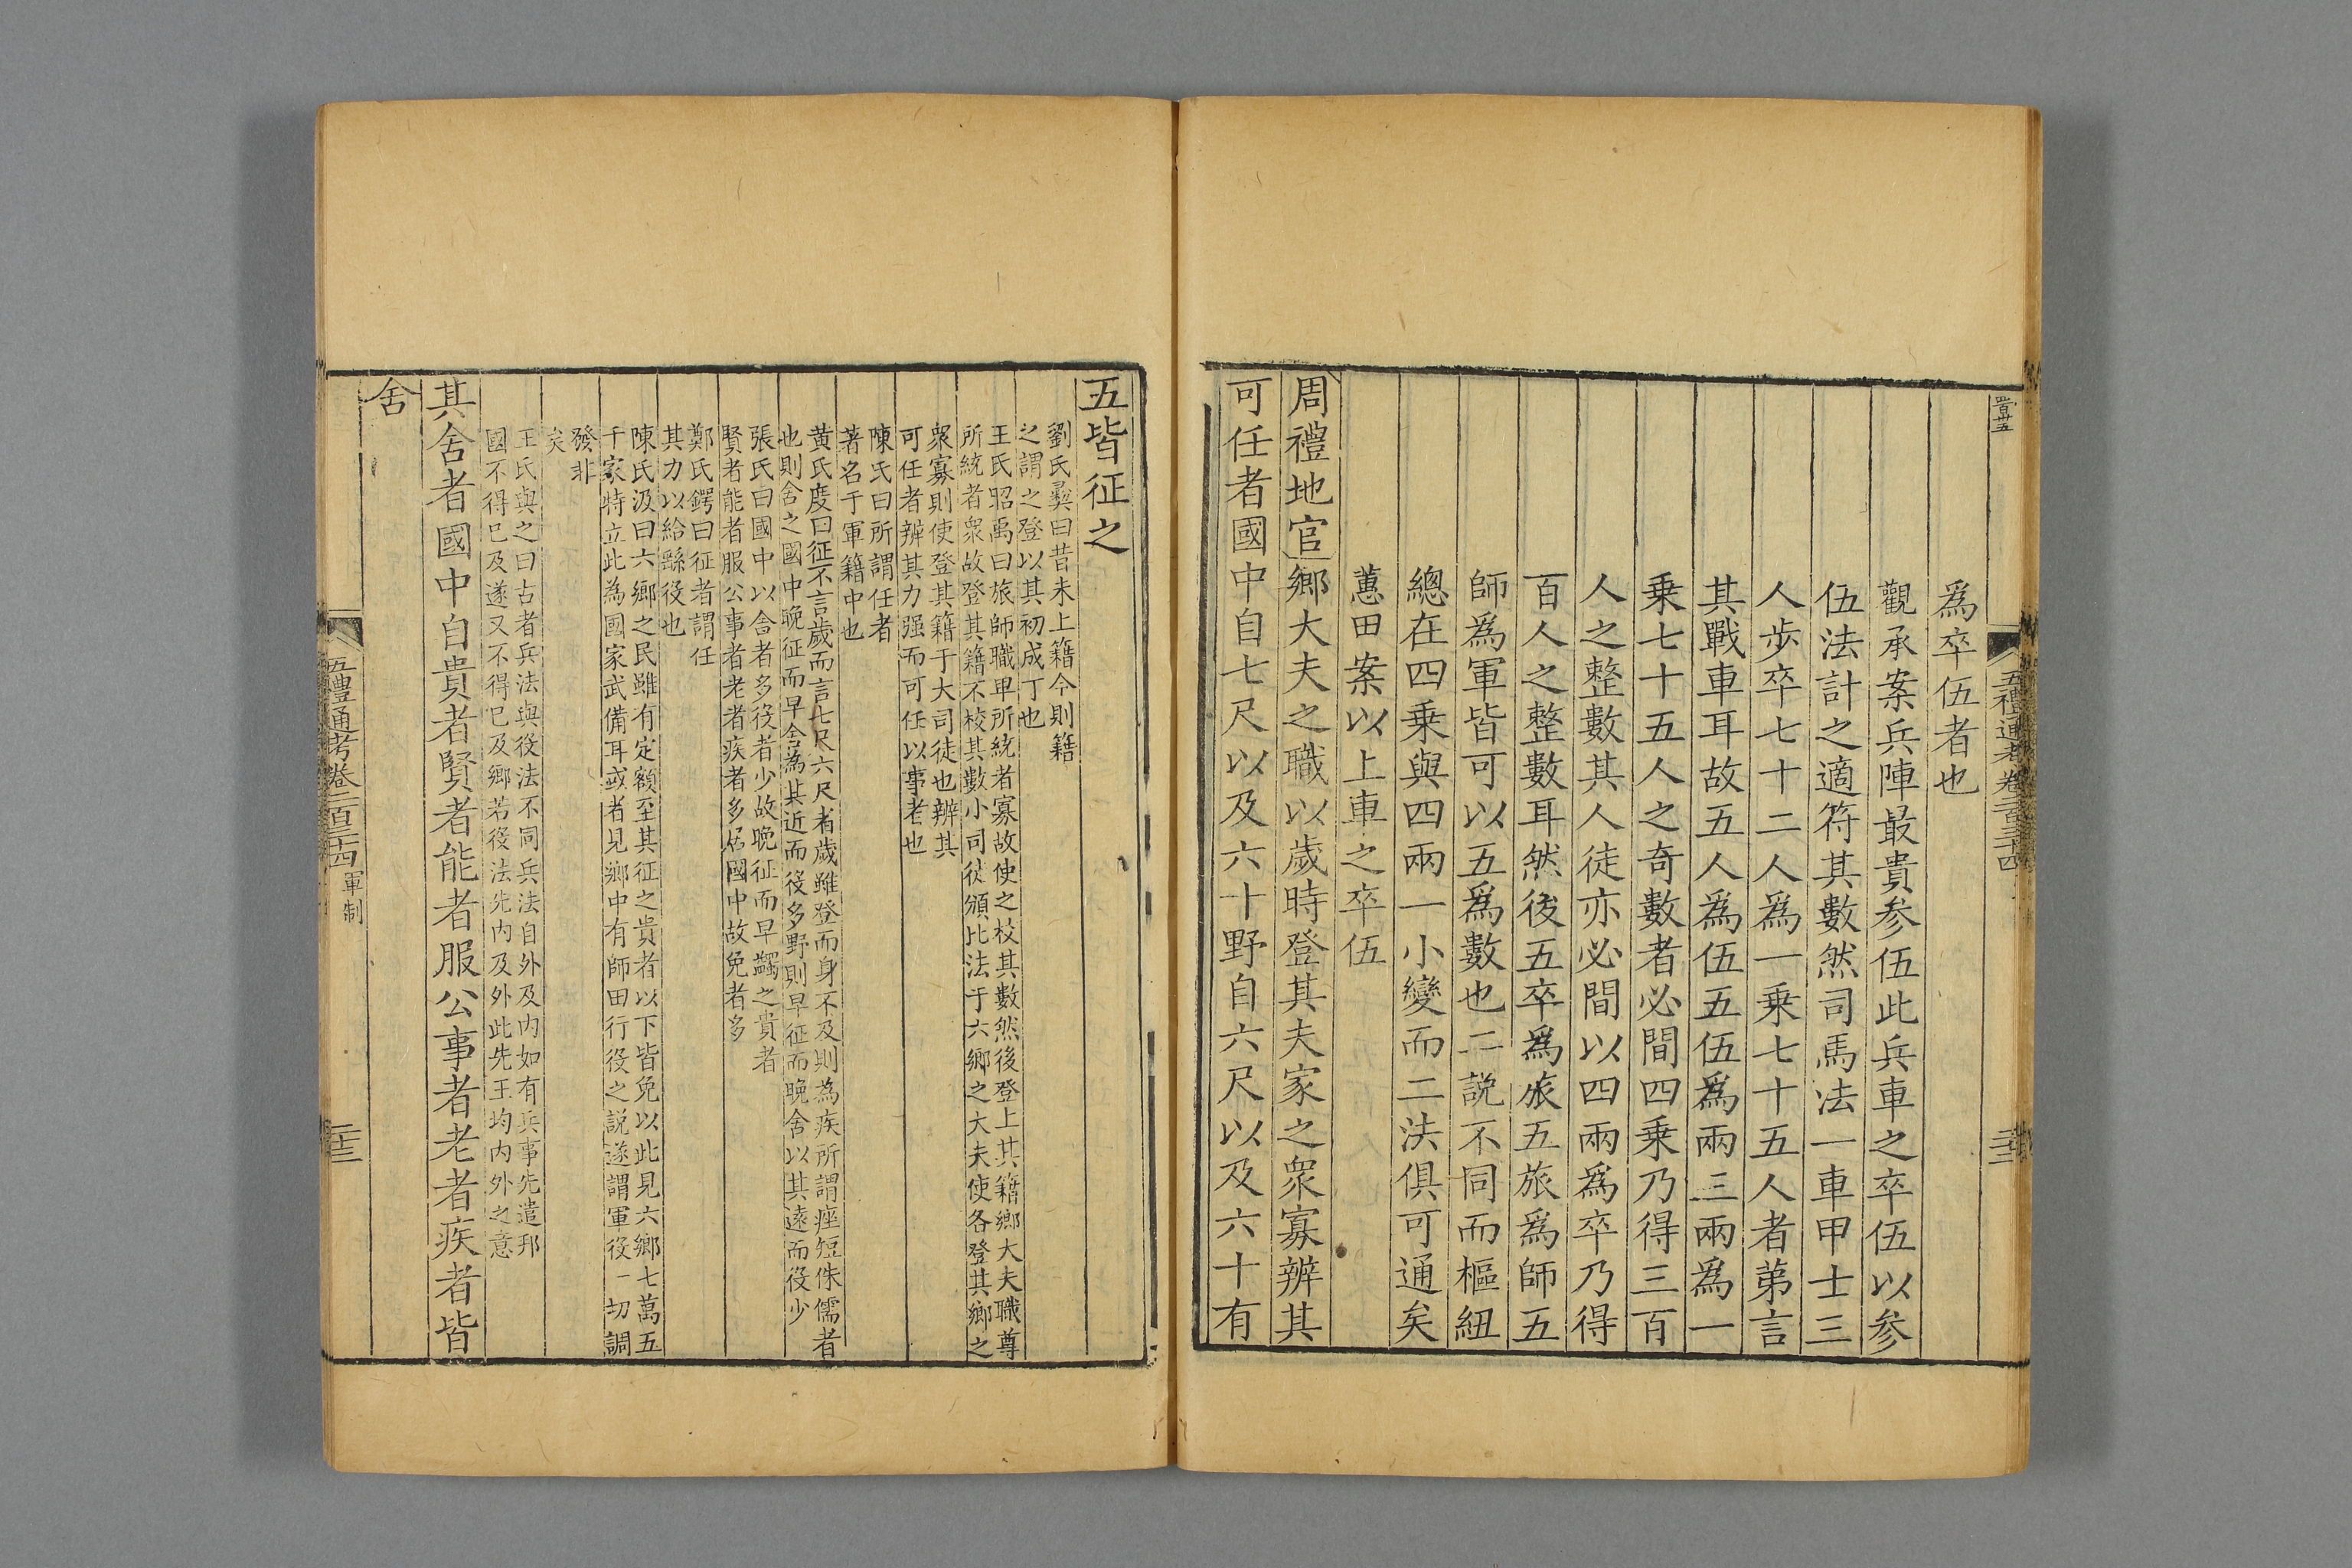 爲卒伍者也
觀承案兵陣最貴参伍此兵車之卒伍以参
伍法計之適符其數然司馬法一車甲士三
人歩卒七十二人爲一乘七十五人者苐言
其戰車耳故五人爲伍五伍爲兩三兩爲一
乗七十五人之奇數者必間四乗乃得三百
人之整數其人徒亦必間以四兩爲卒乃得
百人之整數耳然後五卒爲旅五旅爲師五
師爲軍皆可以五爲數也二説不同而樞紐
總在四乗與四兩一小變而二法俱可通矣
蕙田案以上車之卒伍
周禮地官鄉大夫之職以歲時登其夫家之衆寡辨其
可任者國中自七尺以及六十野自六尺以及六十有
五皆征之
劉氏彛曰昔未上籍今則籍
之謂之登以其初成丁也
王氏昭禹曰旅師職卑所統者寡故使之校其數然後登上其籍鄉大夫職尊
所統者衆故登其籍不校其數小司徒頒比法于六鄉之大夫使各登其鄉之
衆寡則使登其籍于大司徒也辨其
可任者辨其力强而可任以事者也
陳氏曰所謂任者
著名于軍籍中也
黄氏度曰征不言歲而言七尺六尺者歲雖登而身不及則為疾所謂痤短侏儒者
也則舍之國中晚征而早舍為其近而役多野則早征而晚舍以其遠而役少
張氏曰國中以舍者多役者少故晚征而早蠲之貴者
賢者能者服公事者老者疾者多居國中故免者多
鄭氏鍔曰征者謂任
其力以給繇役也
陳氏汲曰六鄉之民雖有定額至其征之貴者以下皆免以此見六鄉七萬五
千家特立此為國家武備耳或者見鄉中有師田行役之説遂謂軍役一切調
發非
矣
王氏與之曰古者兵法與役法不同兵法自外及内如有兵事先遣邦
國不得已及遂又不得已及鄉若役法先内及外此先王均内外之意
其舍者國中自貴者賢者能者服公事者老者疾者皆
舍
五禮通考卷二百三十四 軍制
二十三